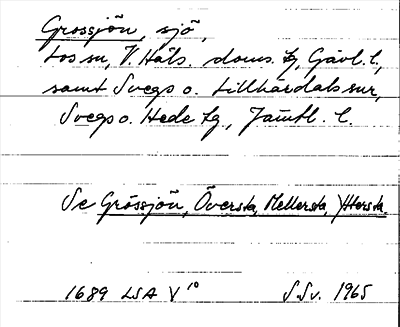 Grossjön, sjö,
Los sn, V. Häls. doms. tg, Gävl. l.,
samt Svegs o. Lillhärdals snr,
Svegs o. Hede tg., Jämtl. l.
Se Grössjön, Översta, Mellersta, Yttersta
1689 LSA V 10
S.Sv. 1965